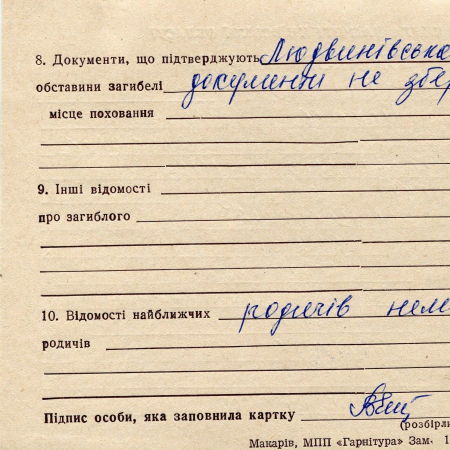 8. Документи, що підтверджують Людвинівська
обставини загибелі документи не збер
місце поховання
9. Інші відомості
про загиблого
10. Відомості найближчих родичів нема
родичів
Підпис особи, яка заповнила картку
(розбірли
Макарів, МПП «Гарнітура» Зам. 1